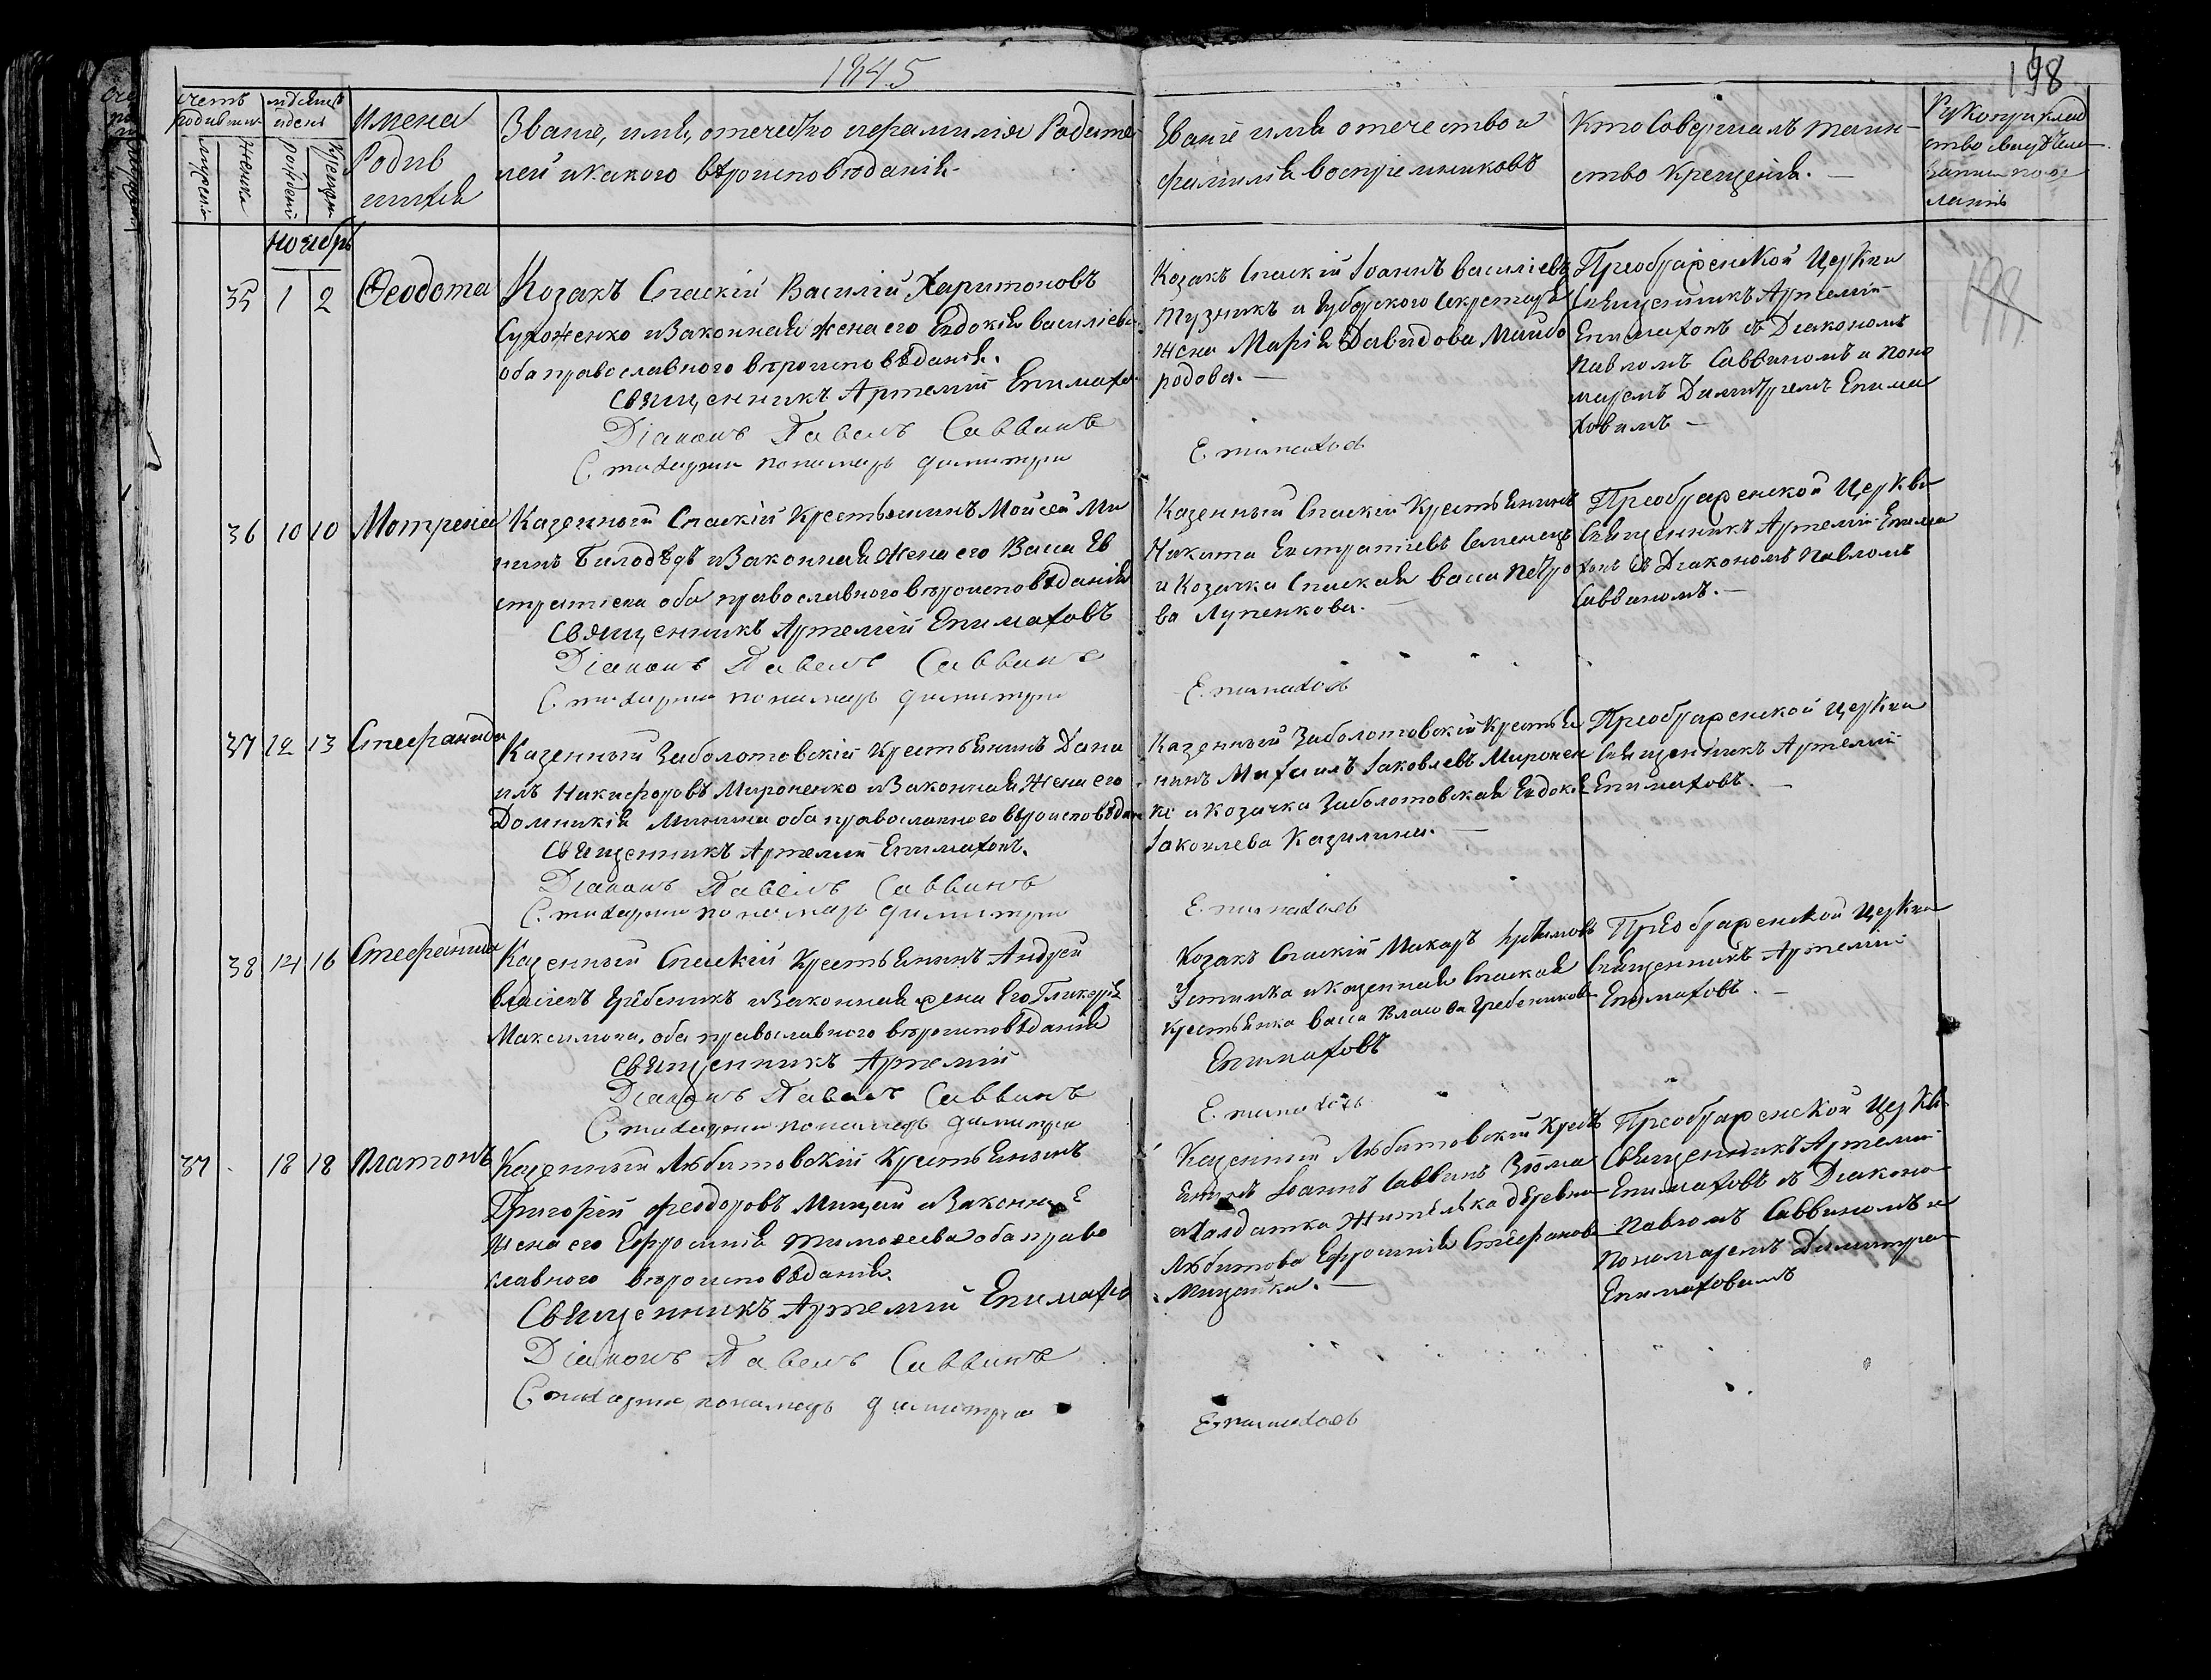 1845
198
счетъ родивших
мужеска
женска
мѣсяцъ и день
рожденія
крещенія
Имена
Родив
шихся
Званіе, имя, отечество и фамилія Родите
лей и какого вѣроисповѣданія
Званіе имя отечество и
фамилія воспріемниковъ
Кто совершалъ таин-
ство крещенія. —
Рукоприклад
ство свидѣтелей
записи по же
ланію
Ноябрь
35 1 2 Ѳеодота
Козакъ Спаскій Василій Харитоновъ
Сухоженко и Законная жена его Евдокія Василіева
оба православного вѣроисповѣданія.
Священникъ Артемій Епимахов
Діаконъ Павелъ Саввинъ
Стихарни пономарь Димитри
Козакъ Спаскій Іоаннъ Василіевъ
Тузникъ и Губерского Секретаря
жена Марія Давидова Майбо
родова. —
Епимаховъ
Преображенской Церкви
Священникъ Артемій
Епимаховъ съ Діакономъ
Павломъ Саввиномъ и поно
маремъ Димитріемъ Епима
ховимъ —
36 10 10 Мотрена
Казенный Спаскій Крестьянинъ Мойсей Ми
нинъ Билодѣдъ и Законная Жена его Васса Ев
стратіева оба православного вѣроисповѣданія
Священникъ Артемій Епимаховъ
Діаконъ Павелъ Саввинъ
Стихарни пономарь Димитри
Казенный Спаскій Крестьянинъ
Никита Евстратіевъ Семенецъ
и Козачка Спаская Васса Петро
ва Лупенкова. —
Епимаховъ
Преображенской Церкви
Священникъ Артемій Епима
ховъ съ Діакономъ Павломъ
Саввиномъ. —
37 12 13 Стефанида
Казенный Заболотовскій Крестьянинъ Дани
илъ Никифоровъ Мироненко и Законная Жена его
Домникія Минина оба православного вѣроисповѣдан
Священникъ Артемий Епимаховъ.
Діаконъ Павелъ Саввинъ
Стихарни пономарь Димитри
Казенный Заболотовскій Крестья
нинъ Михаилъ Іаковлевъ Миронен
ко и Козачка Заболотовская Евдокія
Іаковлева Казилина. —
Епимаховъ
Преображенской Церкви
Священникъ Артемій
Епимаховъ. —
38 14 16 Стефанида
Казенный Спаскій Крестьянинъ Андрей
Власіевъ Гребеникъ и Законная жена Его Гликерія
Максимова, оба православного вѣроисповѣданія
Священникъ Артемій
Діаконъ Павелъ Саввинъ
Стихарни пономарь Димитри
Козакъ Спаскій Макаръ
Устимка и казенная Спаская
Крестьянка Васса Власова Гребеникова
Епимаховъ
Епимаховъ
Преображенской Церкви
Священникъ Артемій
Епимаховъ. —
37 18 18 Платонъ
Казенный Любитовскій Крестьянинъ
Григорій Феодоровъ Мицай и Законная
Жена его Ефросинія Тимоѳеева оба право
славного вѣроисповѣданія.
Священникъ Артемій Епимахов
Діаконъ Павелъ Саввинъ
Стихарни пономарь Димитри
Казенный Любитовскій Кресть
янинъ Іоаннъ Саввинъ Зюма
и Салдатка Жителька деревни
Любитова Ефросинія Стефанова
Мицайка. —
Епимаховъ
Преображенской Церкви
Священникъ Артемій
Епимаховъ съ Діаконо
Павломъ Саввиномъ и
Пономаремъ Димитри
Епимаховимъ